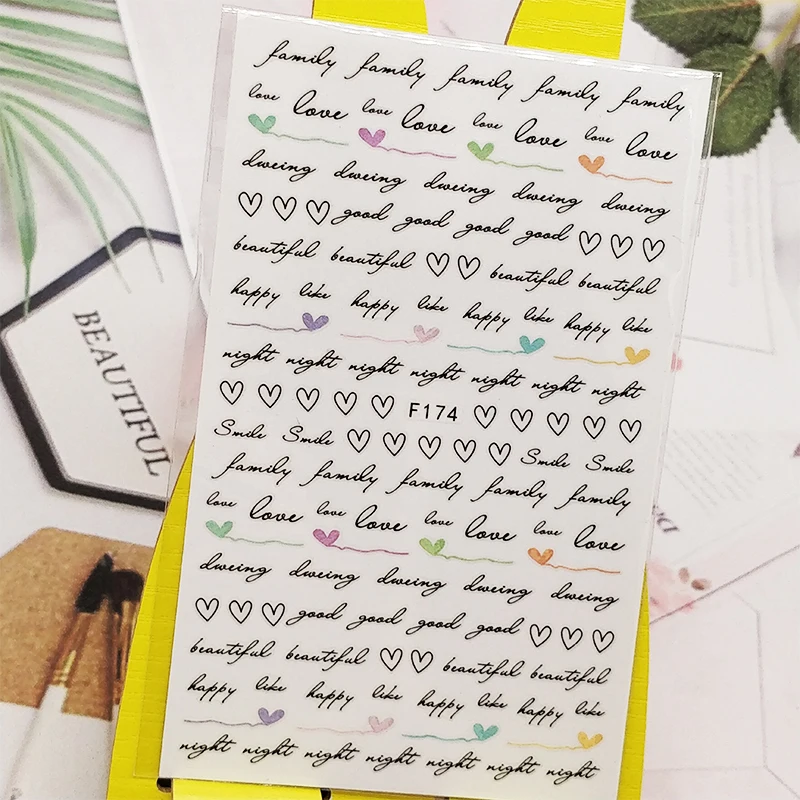 family family family family family
love love love love love love love love
dweing dweing dweing dweing dweing
good good good good
beautiful beautiful beautiful beautiful
happy like happy like happy like happy like
night night night night night night night
F174
Smile Smile Smile Smile
family family family family family
love love love love love love love love
dweing dweing dweing dweing dweing
good good good good
beautiful beautiful beautiful beautiful
happy like happy like happy like happy like
night night night night night night night
BEAUTIFUL